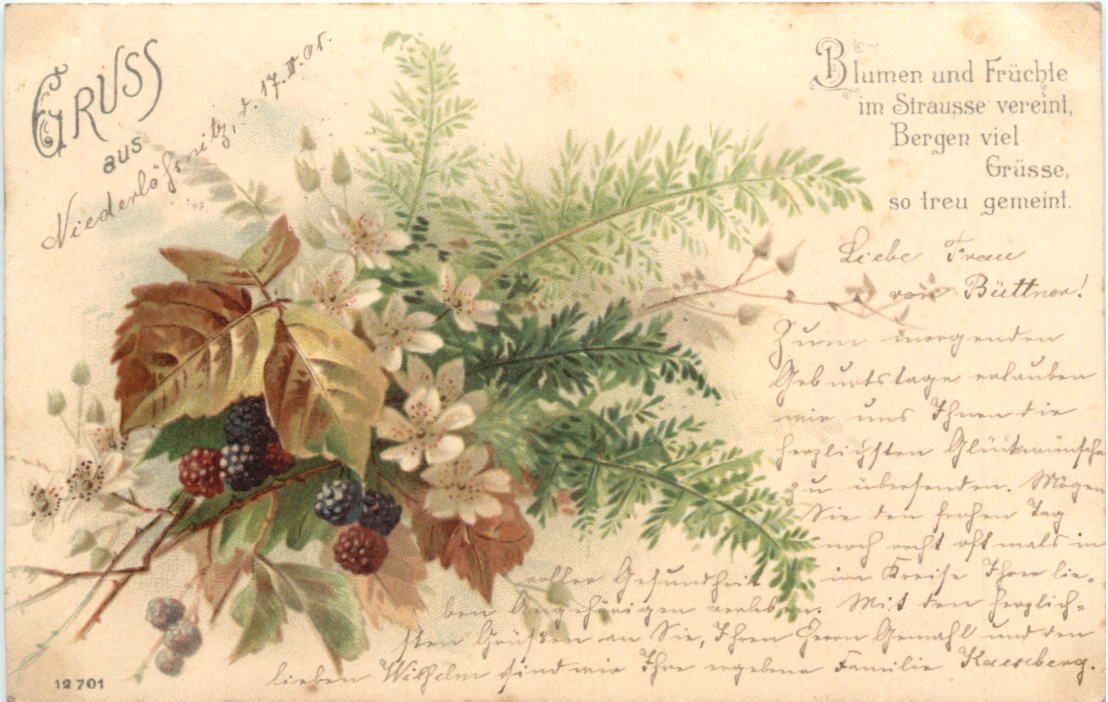 Gruss
aus
Niederlößnitz, d. 17. II. 05.
Blumen und Früchte
im Strausse vereint,
Bergen viel
Grüsse,
so treu gemeint.
Liebe Frau
von Büttner!
Zum morgenden
Geburtstage erlauben
wir uns Ihnen die
herzlichsten Glückwünsche
zu übersenden. Mögen
Sie den frohen Tag
noch recht oftmals in
voller Gesundheit im Kreise Ihrer lie-
ben Angehörigen verleben. Mit den herzlich-
sten Grüßen an Sie, Ihren Herrn Gemahl und den
lieben Wilhelm sind wir Ihre ergebene Familie Kaesberg.
12 701